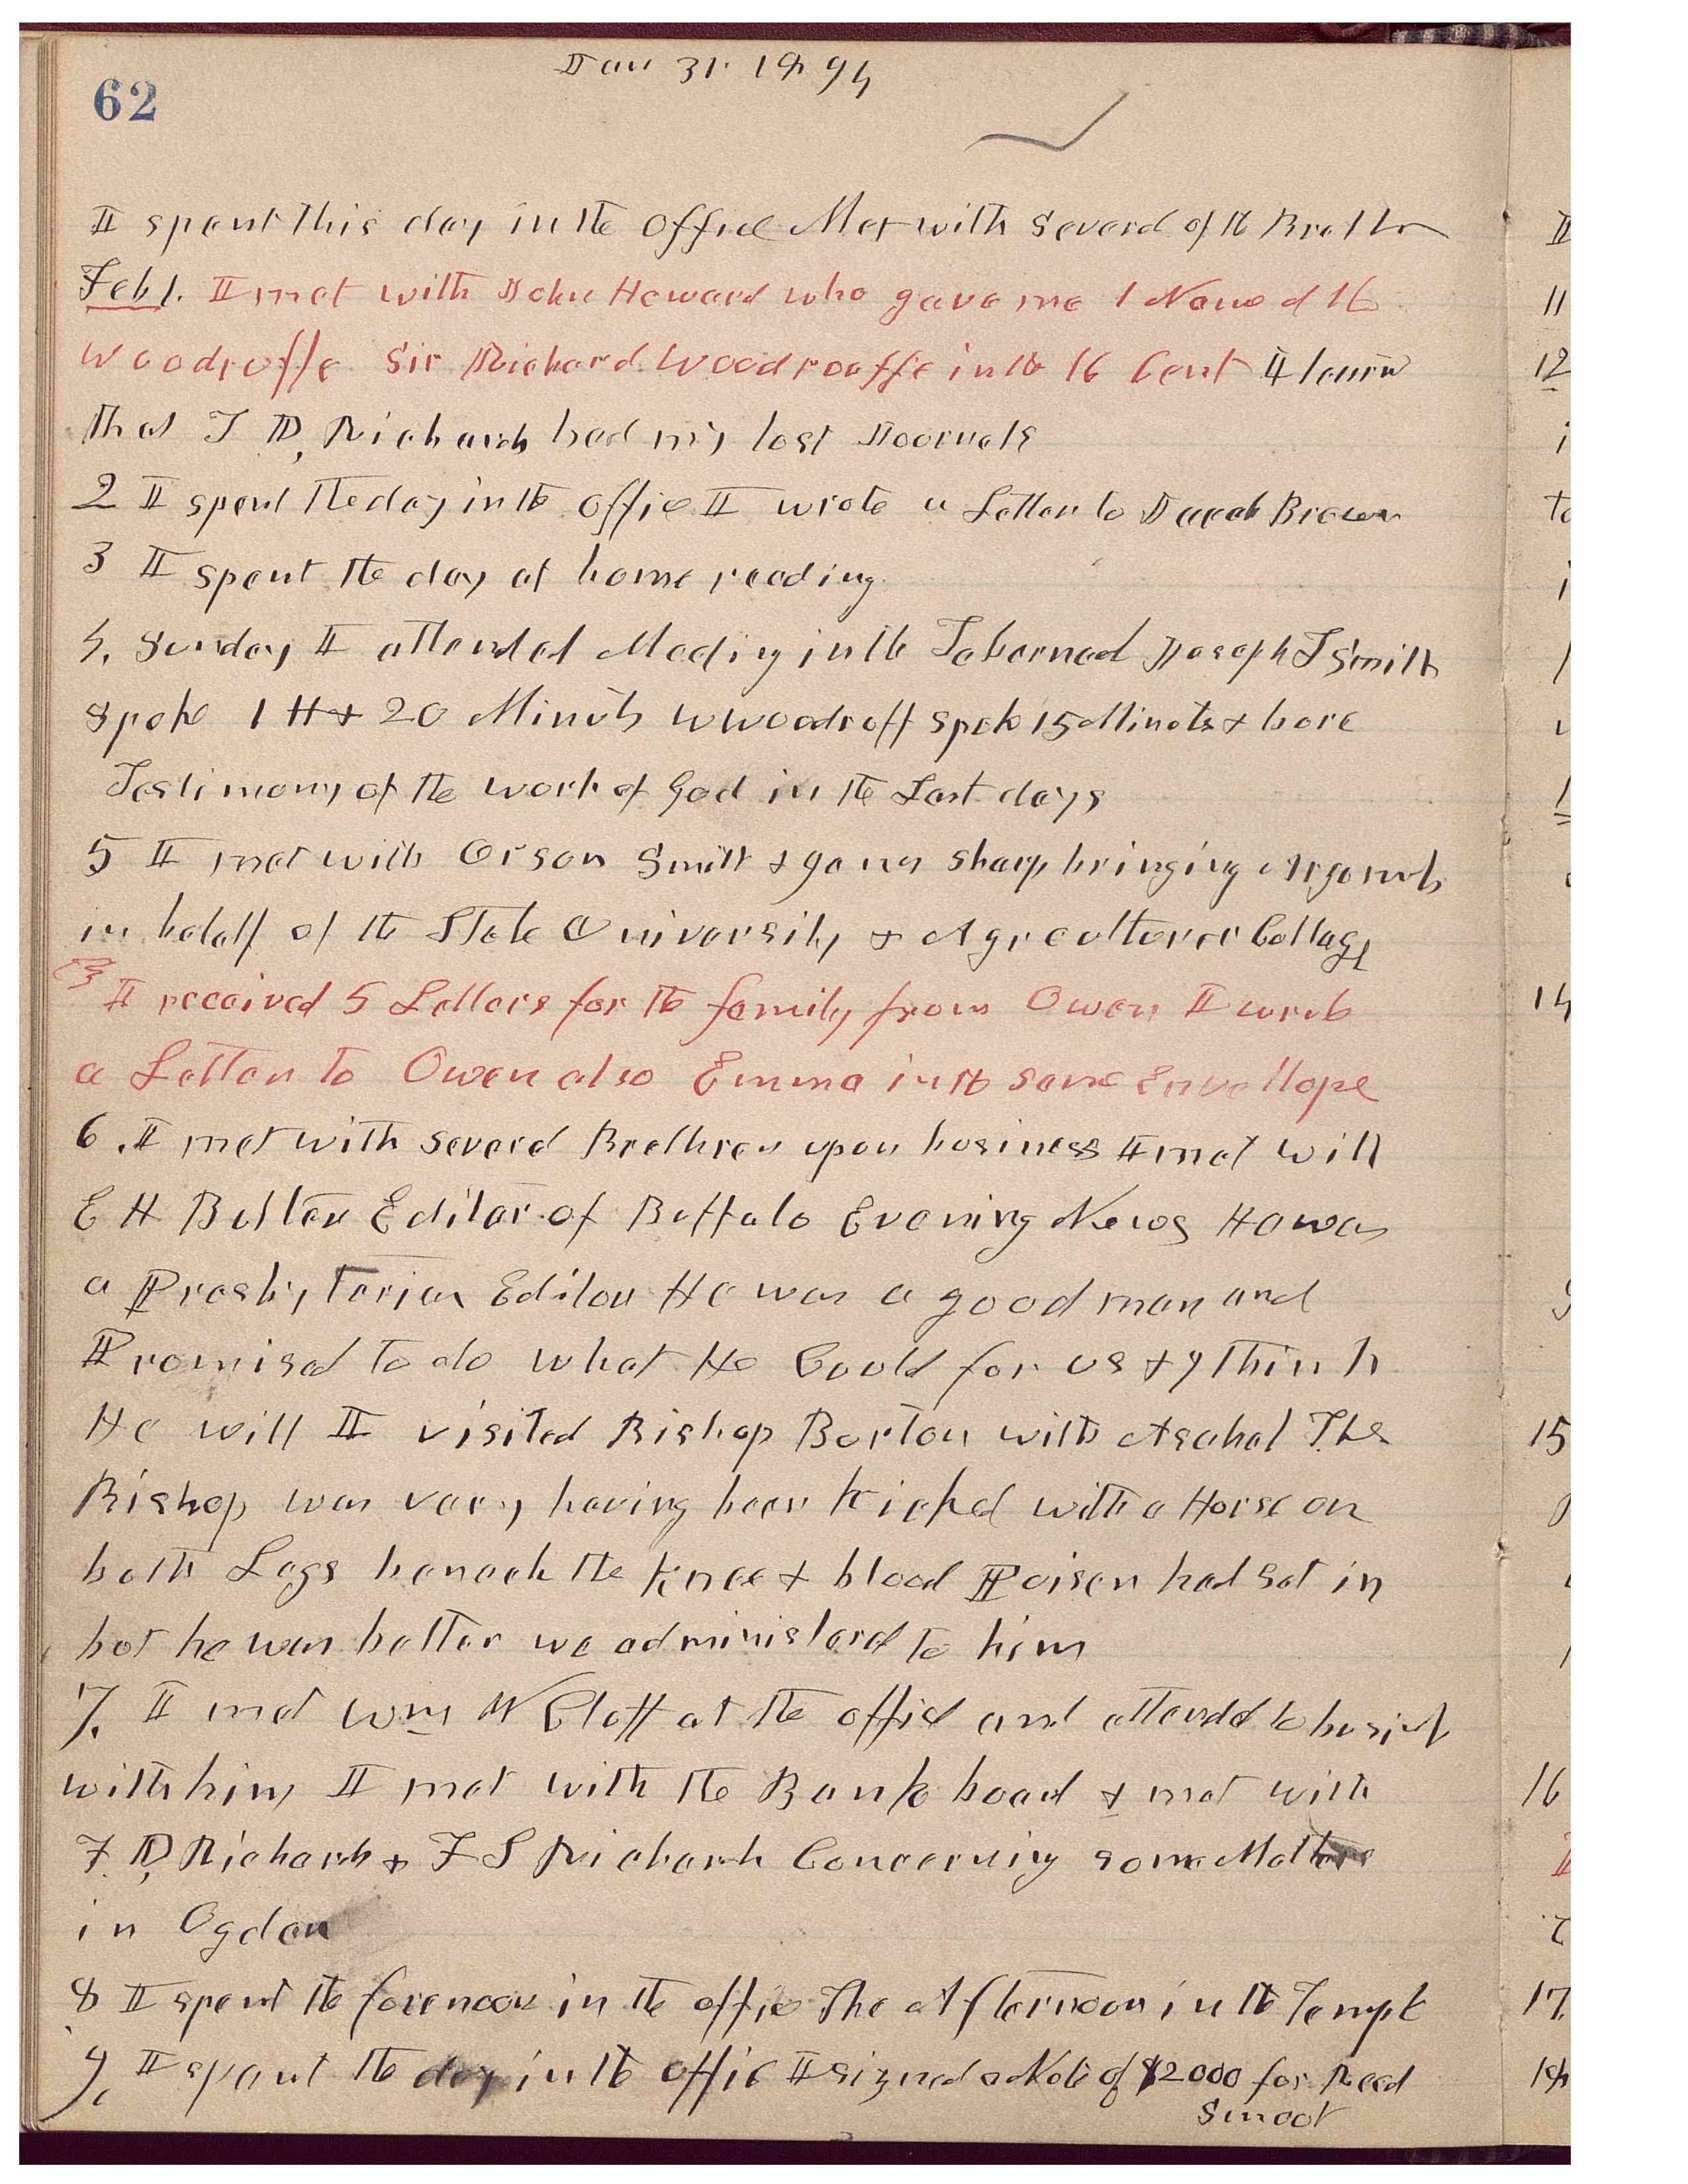 62
Jan 31. 1894
I spent this day in the office Met with Severel of the Brethr
Feb 1. I met with John Howard who gave me 1 Name of the
Woodroffe Sir Richard Woodrooffe in the 16 Cent I learn
that F D, Richards had my lost Journals
2 I spent the day in the offic I wrote a Letter to Jacob Brown
3 I spent the day at home reading
4. Sunday I attended Meeting in the Tabernacl Joseph F Smith
spoke 1 H & 20 Minuts W Woodruff Spok 15 Minuts & bore
Testimony of the work of God in the Last days
5 I met with Orson Smith & sharp bringing Argumts
in behalf of the State University & Agriculturer Collage
I received 5 Letters for the family from Owen I wrote
a Letter to Owen also Emma in the same Envellope
6. I met with Severel Brethren upon business I met with
E H Butler Editor of Buffalo Evening News He was
a Presbyterian Editor He was a good man and
Promised to do what He Could for us & I think
He will I visited Bishop Burton with Asahel The
Bishop was very having been kicked with a Horse on
both Legs beneath the knee & blood Poisen had set in
but he was better we administered to him
7. I met Wm W Cluff at the office and attended to busins
with him I met with the Bank board & met with
F D, Richards & F S Richards Concerning some Matters
in Ogden
8 I spent the forenoon in the office The Afternoon in the Temple
9, I spent the day in the offic I signed a Note of $2000 for Reed
Smoot
I
11
12
i
to
i
14
15
16
17
18